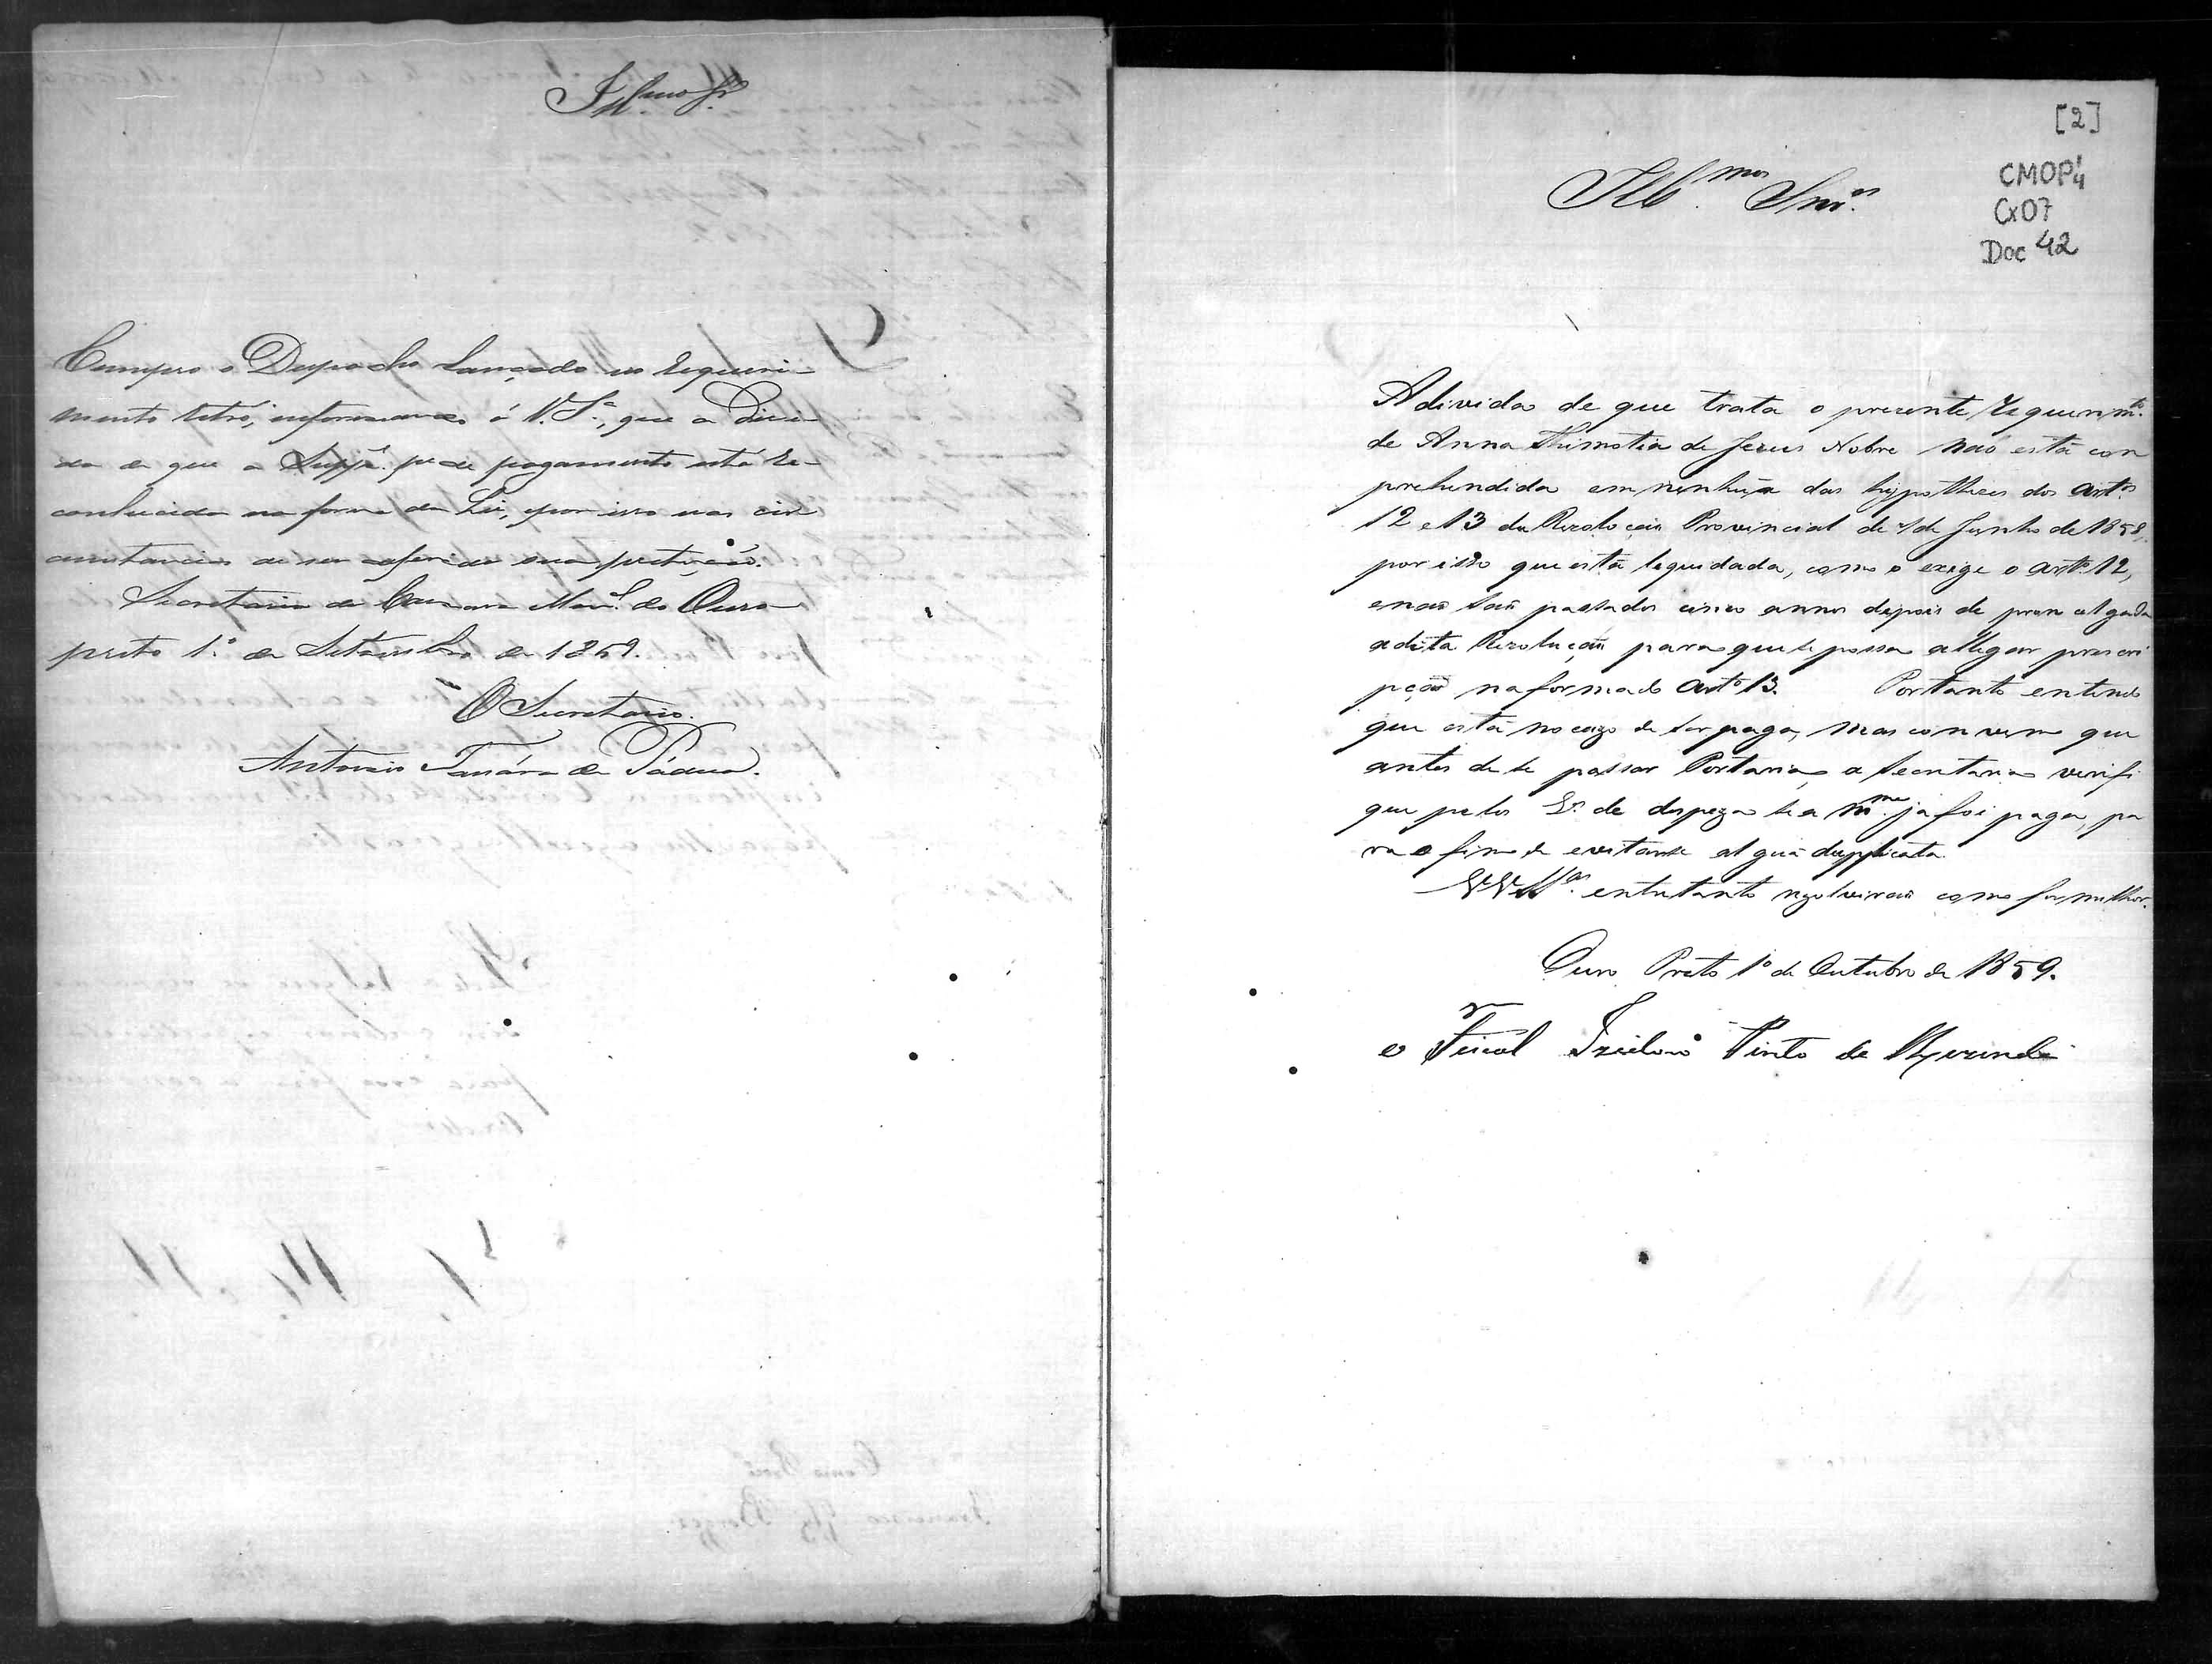 Illmo Sr.
Cumpro o Despacho lançado no requeri-
mento retro, informando á V. Sa., que a Divi-
da de que a Suppe. pede pagamento está re-
conhecida na forma da Lei, e por isso nas cir
cunstancias de ser deferida sua petição.
Secretaria da Camara Mcal. do Ouro
preto 1.º de Setembro de 1859.
O Secretario.
Antonio de Pádua.
[2]
CMOP
Cx07
Doc 42
Illmos Snres.
A divida de que trata o prezente requerimto.
de Anna Thimotia de Jezus Nobre não está com
prehendida em nenhũa das hypotheses dos artos
12 e 13 da Rezolução Provincial de de Junho de 1858,
por isso que está liquidada, como o exige o arto. 12,
e não são passados cinco annos depois de promulgada
a dita Rezolução para que se possa allegar prescri
pção na forma do arto. 13. Portanto entendo
que está no cazo de ser paga, mas convem que
antes de se passar Portaria, a Secretaria verifi
que pelos Ls. de despeza se a mma. ja foi paga, pa
ra o fim de evitar-se algũa duplicata.
VVSas. entretanto rezolverão como for milhor.
Ouro Preto 1º de Outubro de 1859.
o Fiscal Izidoro Pinto de Rezende